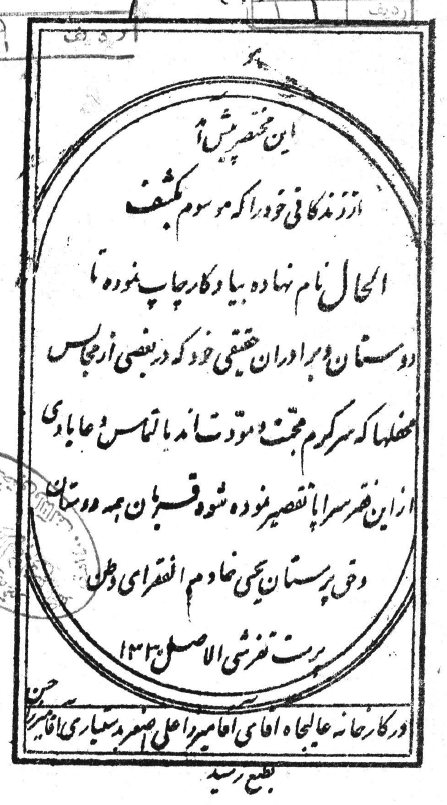 ردیف
ردیف
هو
این مختصر پیش آمد
از زندگانی خود را که موسوم بکشف
الحال نام نهاده بیادگار چاپ نموده تا
دوستان و برادران حقیقی خود که در بعضی از مجالس
محفلها که سرگرم محبت و مودت اند بالتماس دعا یادی
از این فقیر سراپا تقصیر نموده شوه قربان همه دوستان
وحق پرستان یحیی خادم الفقرای وطن
پرست تفرشی الاصل ۱۳۳۰
در کارخانه عالیجاه آقای آقا میرزا علی اصغر بدستیاری آقا میرزا حسن
بطبع رسید